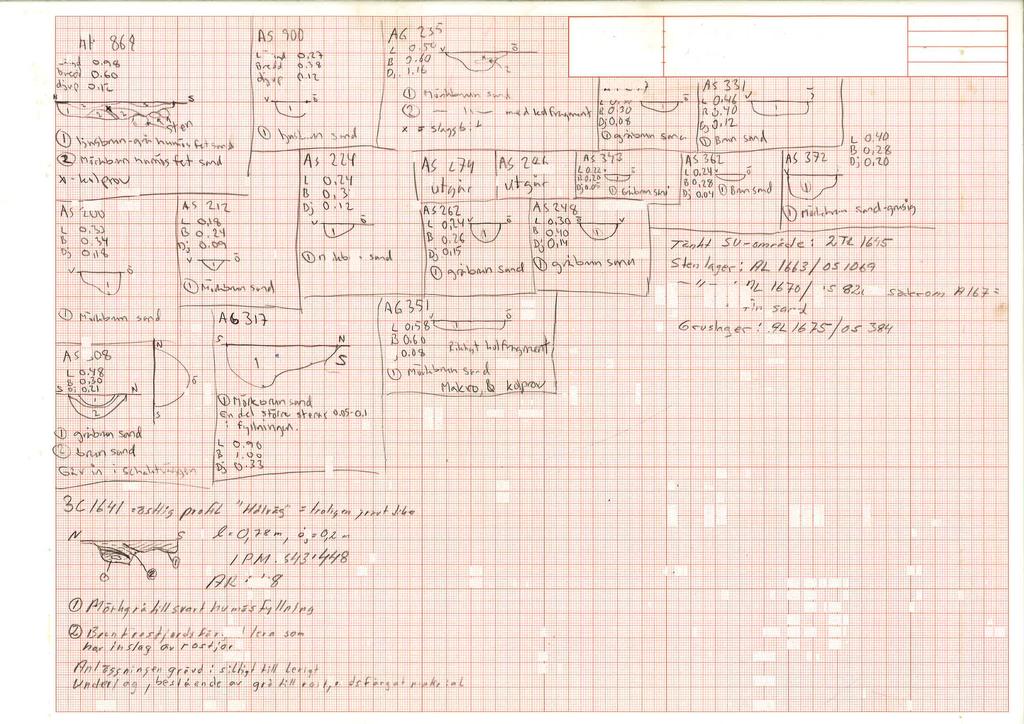 869
0.98
bredd 0.60
djup 0.12
N S
sten
① ljusbrun-grå humös fet sand
② Mörkbrun humös fet sand
x - kolprov
AS 900
längd 0.27
Bredd 0.38
djup 0.12
V Ö
1
① ljusbrun sand
AG 235
L 0.50
B 0.60
Dj 1.16
V Ö
2
① Mörkbrun sand
② — 11 — med kolfragment
x = slaggbit
B 0.30
Dj 0.08
V Ö
① gråbrun sand
AS 331
L 0.46
B 0.40
Dj 0.12
V
1
① Brun sand
L 0.40
B 0.28
Dj 0.20
AS 224
L 0.24
B 0.3
Dj 0.12
V Ö
1
① sand
AS 274
utgår
AS 246
utgår
AS 343
L 0.22
B 0.20
Dj 0.05
① Gråbrun sand
AS 362
L 0.24
B 0,28
Dj 0.04
V Ö
① Brun sand
AS 372
V Ö
1
① Mörkbrun sand-grusig
AS 200
L 0.33
B 0.34
Dj 0.18
V Ö
1
① Mörkbrun sand
AS 212
L 0.18
B 0.24
Dj 0.09
V Ö
① Mörkbrun sand
AS 262
L 0,24
B 0.26
Dj 0,15
V Ö
1
① gråbrun sand
AS 248
L 0,30
B 0,40
Dj 0,14
V
1
① gråbrun sand
Tänkt SU-område: 2TL 1645
Stenlager: AL 1663/OS 1069
— " — AL 1670/ OS 82 söderom A167=
sand
Gruslager: AL 1675/OS 384
AG 317
S N
1
S
① Mörkbrun sand
En del större stenar 0.05-0.1
i fyllningen.
L 0.90
B 1.00
Dj 0.33
AG 351
L 0,58
B 0.60
0.08
V Ö
Rikligt kolfragment
① Mörkbrun sand
Makro, & kolprov
AS 308
L 0,48
B 0,30
Dj 0.21
S N
1
2
N
Ö
S
① gråbrun sand
② brun sand
Går in i schaktväggen
3C1641 = östlig profil "Hålväg" = troligen grävt dike
N S
① ②
l=0,78m, dj=0,2m
IPM. 543-448
① Mörkgrå till svart humös fyllning
② lera som
har inslag av rostjord
Anläggningen grävd i siltigt till lerigt
Underlag, bestående av grå till material